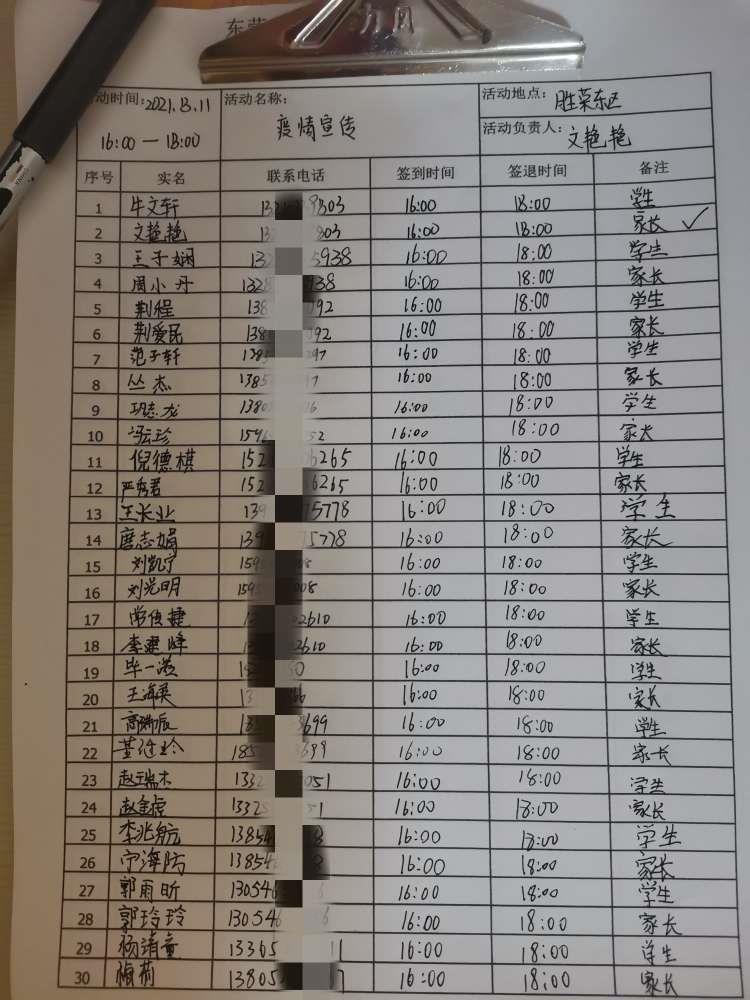 东营
活动时间: 2021.8.11 活动名称: 活动地点: 胜荣东区
16:00 — 18:00 疫情宣传 活动负责人: 文艳艳
序号 实名 联系电话 签到时间 签退时间 备注
1 牛文轩 16:00 18:00 学生
2 文艳艳 16:00 18:00 家长 ✓
3 王子娴 5938 16:00 18:00 学生
4 周小丹 1328 938 16:00 18:00 家长
5 荆程 138 092 16:00 18:00 学生
6 荆爱民 138 092 16:00 18:00 家长
7 范子轩 16:00 18:00 学生
8 丛杰 1385 16:00 18:00 家长
9 志龙 1380 16:00 18:00 学生
10 冯云珍 1596 52 16:00 18:00 家长
11 倪德棋 152 6265 16:00 18:00 学生
12 严秀君 152 6265 16:00 18:00 家长
13 王长业 139 75778 16:00 18:00 学生
14 志娟 139 75778 16:00 18:00 家长
15 刘凯宁 1595 16:00 18:00 学生
16 刘光明 1595 008 16:00 18:00 家长
17 常佳捷 02610 16:00 18:00 学生
18 李建峰 2610 16:00 18:00 家长
19 毕一 16:00 18:00 学生
20 王海英 16:00 18:00 家长
21 高瑞辰 3699 16:00 18:00 学生
22 董 185 3699 16:00 18:00 家长
23 赵瑞木 133 051 16:00 18:00 学生
24 赵金虎 13325 51 16:00 18:00 家长
25 李兆航 13854 8 16:00 18:00 学生
26 宁海防 13854 8 16:00 18:00 家长
27 郭雨昕 130546 6 16:00 18:00 学生
28 郭玲玲 130546 6 16:00 18:00 家长
29 杨清童 13365 11 16:00 18:00 学生
30 梅荀 13805 7 16:00 18:00 家长